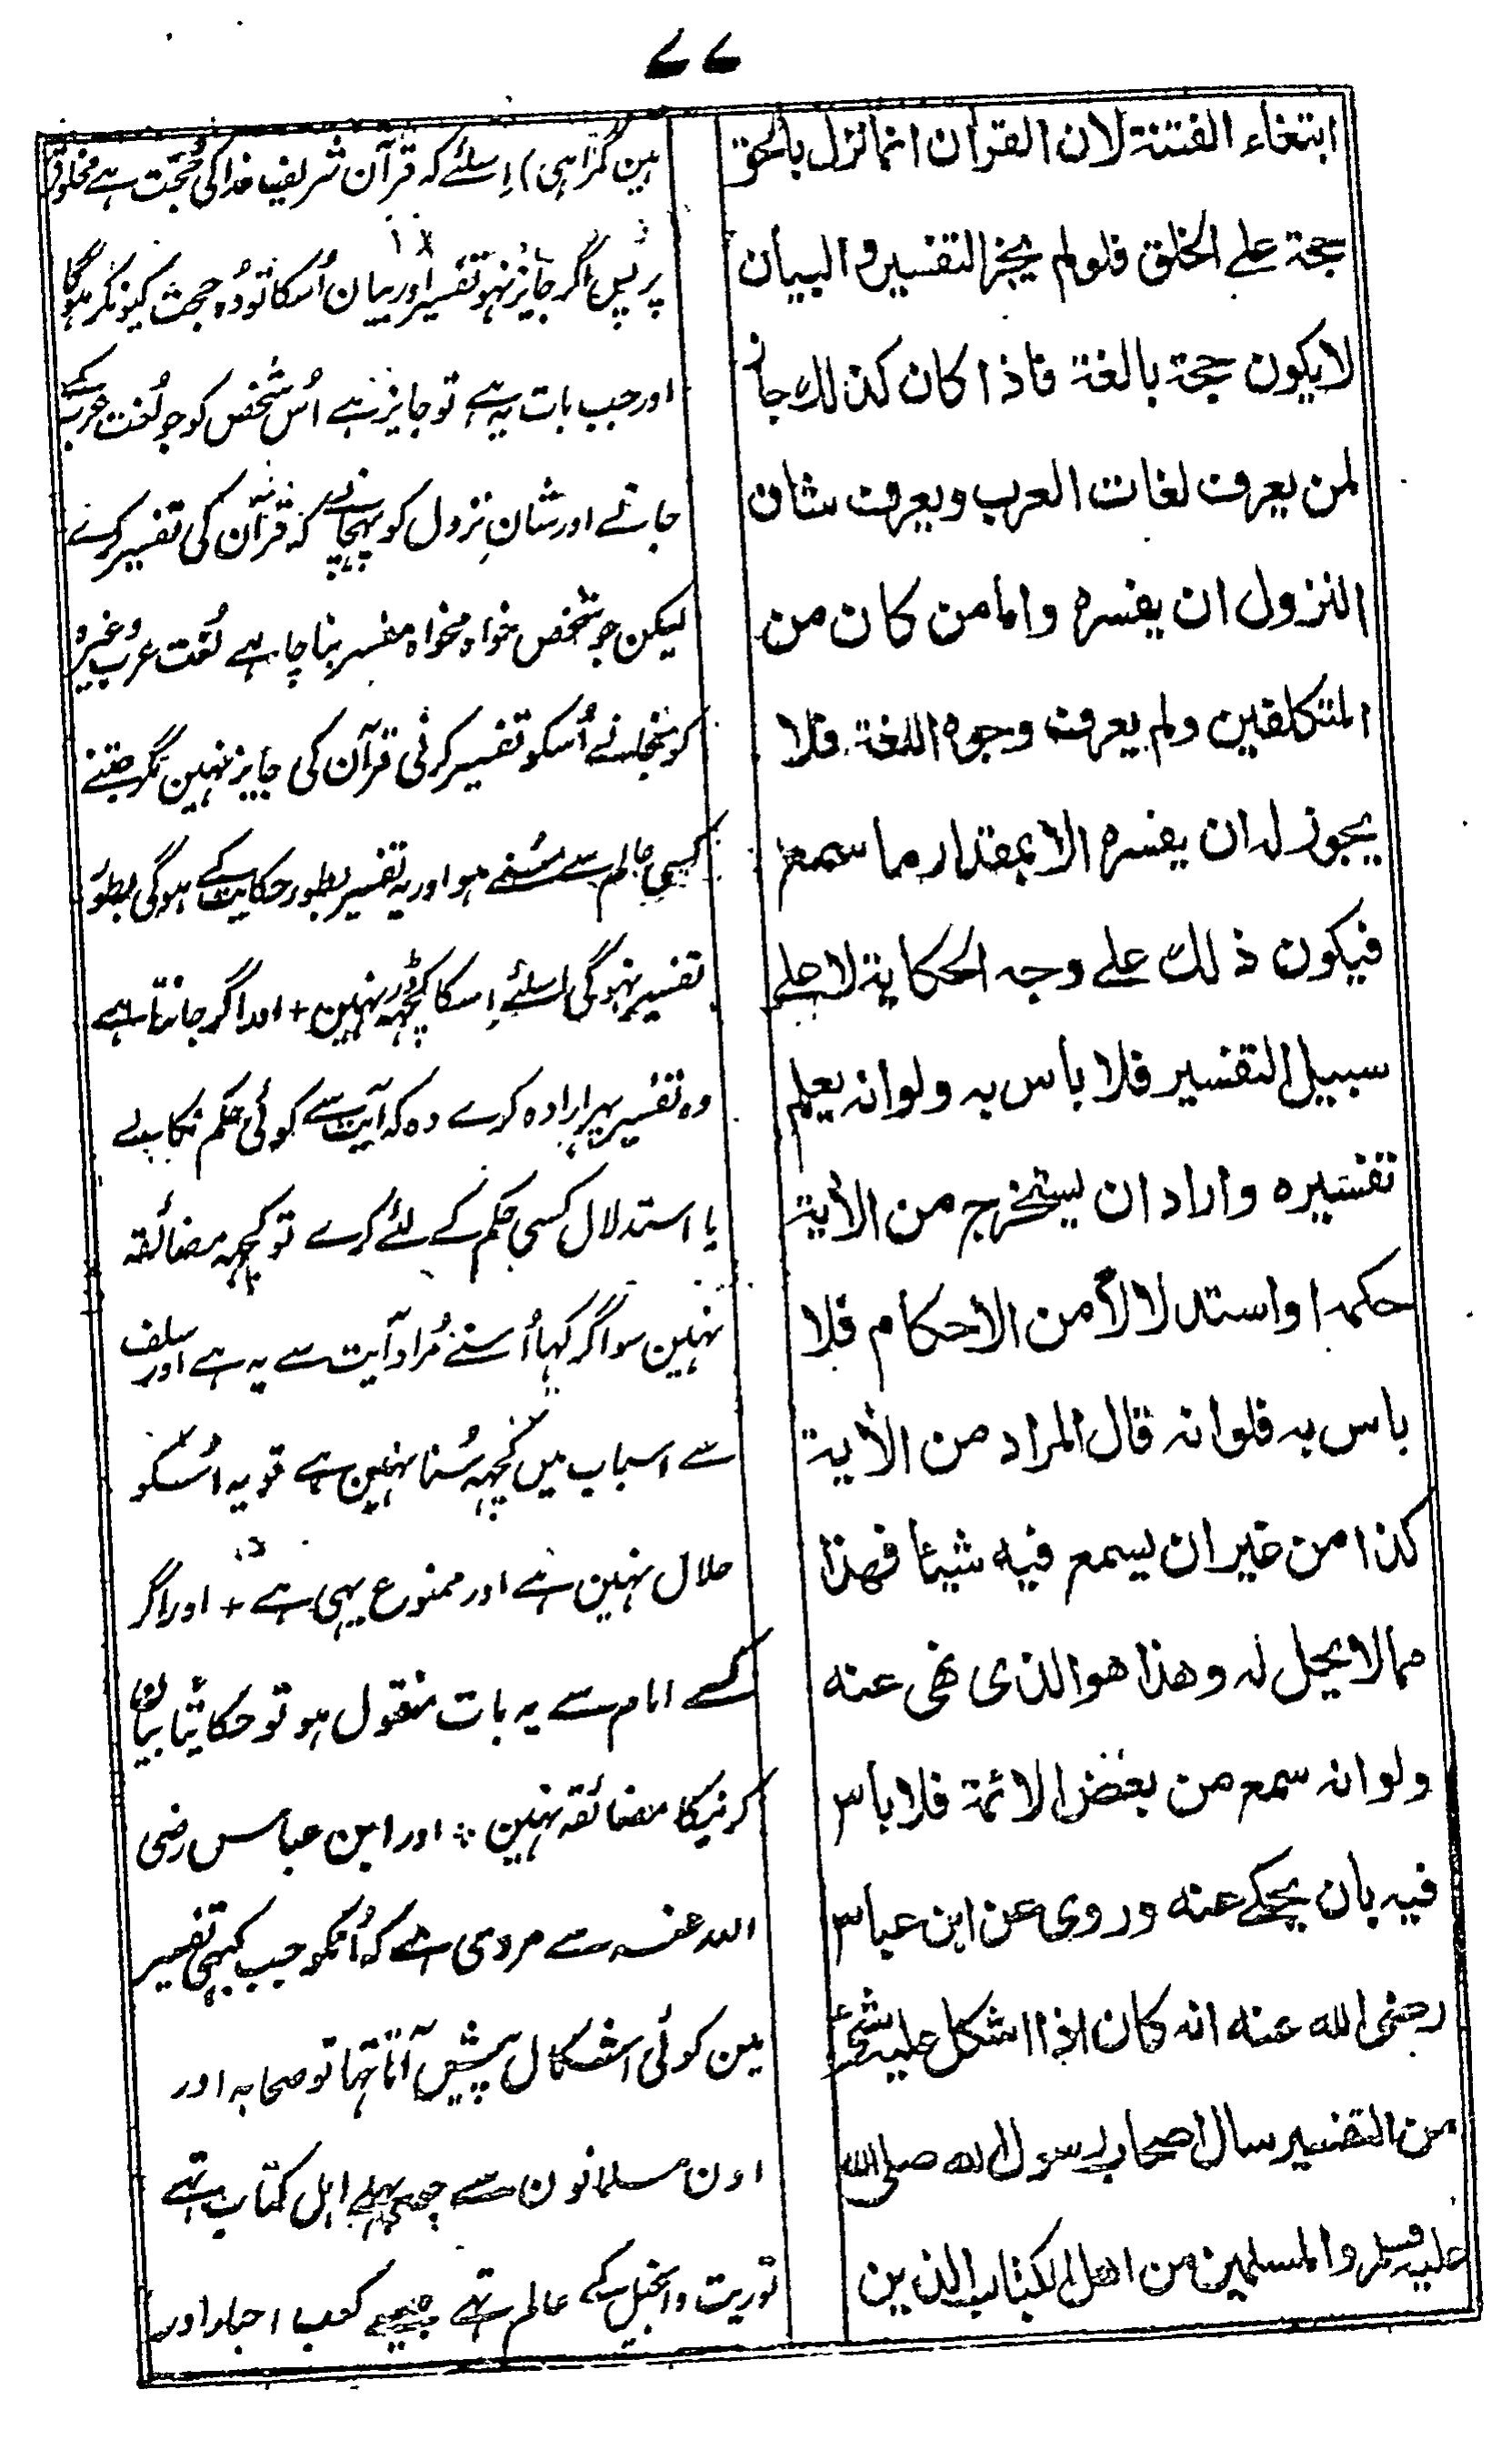 ۷۷
ابتغاء الفتنة لان القرأن انما نزل بالحق
حجة علے الخلق فلو لم يجز التفسير و البيان
لا يكون حجة بالغة فاذا كان كذلك جاز
لمن يعرف لغات العرب ويعرف شان
النزول ان يفسره واما من كان من
المتكلفين ولم يعرف وجوه اللغة فلا
يجوز له ان يفسره الا بمقدار ما سمع
فيكون ذلك علے وجه الحكاية لا علے
سبيل التفسير فلا باس به ولو انه يعلم
تفسيره واراد ان يستخرج من الأية
حكمه او استدلالاً من الاحكام فلا
باس به فلو انه قال المراد من الأية
كذا من غير ان يسمع فيه شيئا فهذا
مما لا يحل له وهذا هو الذى نهى عنه
ولو انه سمع من بعض الائمة فلا باس
فيه بان يحكے عنه وروى عن ابن عباس
رضى الله عنه انه كان اذا اشكل عليه شئ
من التفسير سال اصحاب رسول الله صلى الله
عليه وسلم والمسلمين من اهل الكتاب الذين
ہین گمراہی) اِسلئے کہ قرآن شریف خدا کی حُجّت ہے مخلوق
پر پس اگر جایز نہو تفسیر اور بیان اُسکا تو وُہ حجت کیونکر ہوگا
اور جب بات یہ ہے تو جایز ہے اُس شخص کو جو لُغت عرب کے
جانے اور شانِ نزول کو پہچانے کہ قرآن کی تفسیر کرے
لیکن جو شخص خواہ مخواہ مفسر بنا چاہے لُغت عرب وغیرہ
کو نجانے اُسکو تفسیر کرنی قرآن کی جایز نہین مگر جتنے
کسی عالم سے سُنے ہو اور یہ تفسیر بطور حکایت کے ہوگی بطور
تفسیر نہوگی اسلئے اِسکا کچھہ ڈر نہین + اور اگر جانتا ہے
وہ تفسیر پہر ارادہ کرے وہ کہ آیت سے کوئی حکم نکالے
یا استدلال کسی حکم کے لئے کرے تو کچھہ مضائقہ
نہین سو اگر کہا اُسنے مُراد آیت سے یہ ہے اور سلف
سے اسباب میں کچھہ سُنا نہین ہے تو یہ اُسکو
حلال نہین ہے اور ممنوع یہی ہے + اور اگر
کسے امام سے یہ بات منقول ہو تو حکایتًا بیان
کرنیکا مضائقہ نہین ٭ اور ابن عباس رضی
اللہ عنہ سے مروی ہے کہ اُنکو جب کبھی تفسیر
مین کوئی اشکال پیش آتا تہا تو صحابہ اور
اون مسلمانون سے جو پہلے اہل کتاب تہے
توریت وانجیل کے عالم تہے جیسے کعب احبار اور